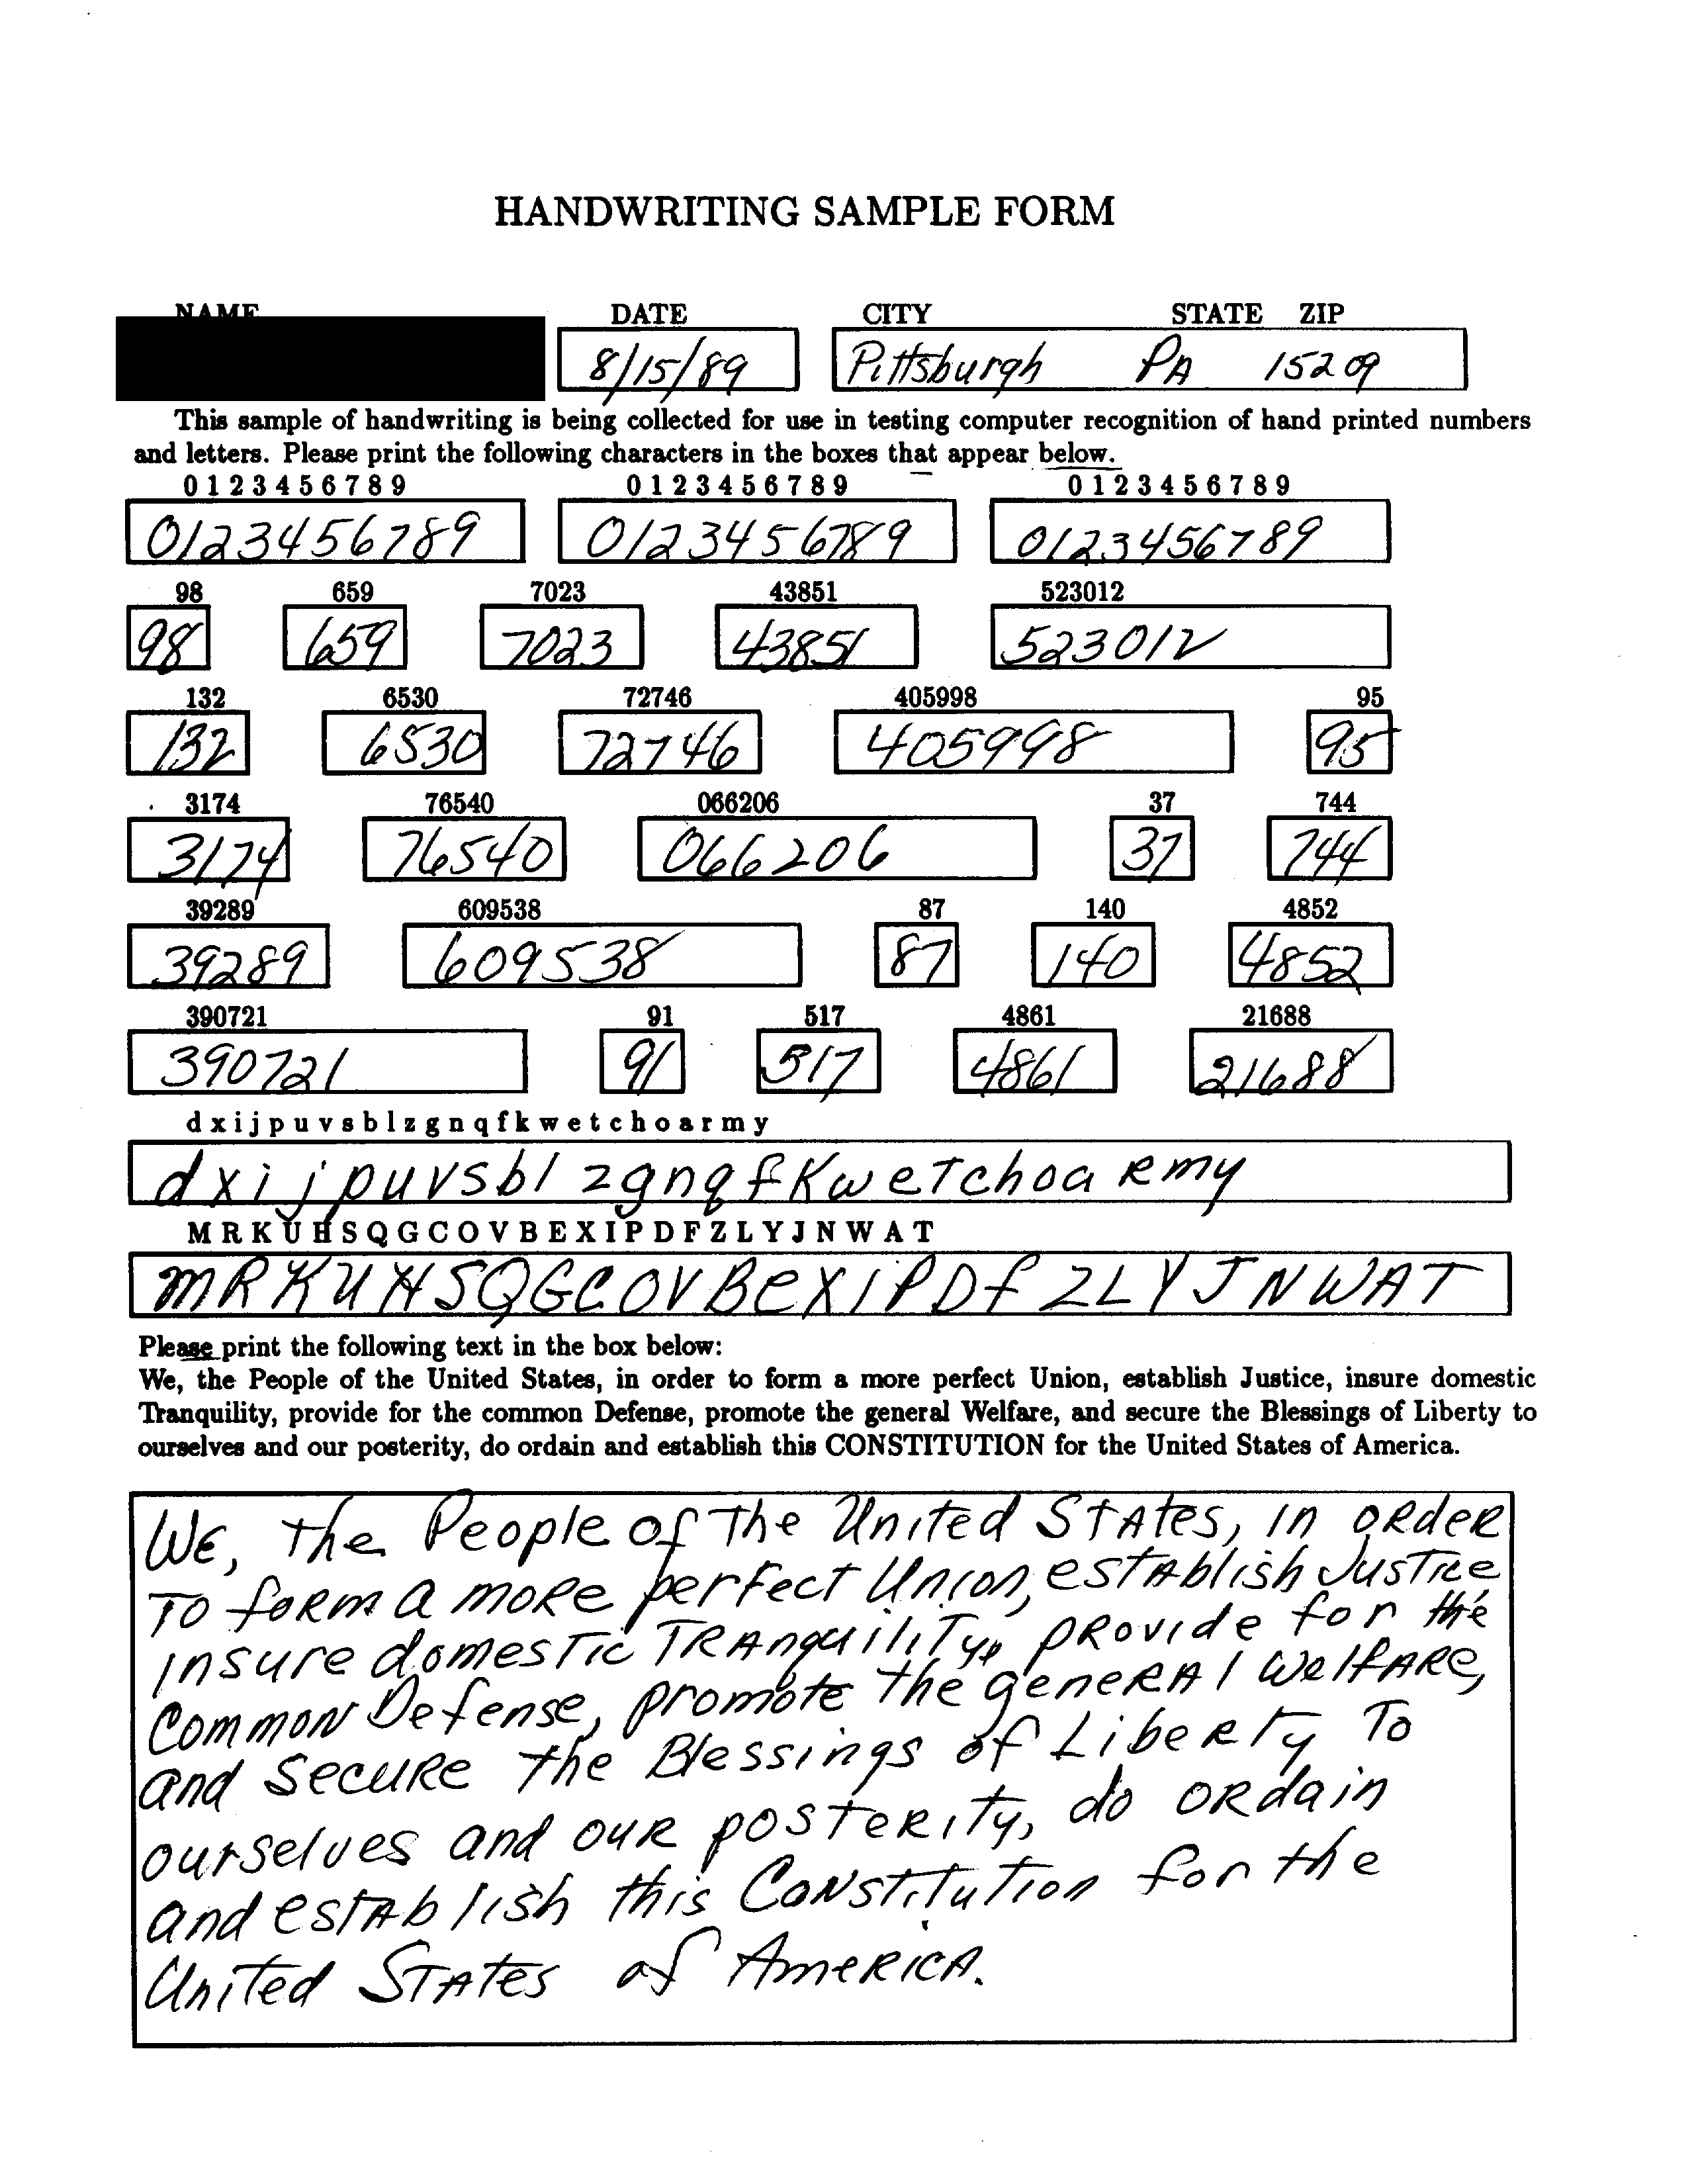 HANDWRITING SAMPLE FORM
NAME DATE CITY STATE ZIP
8/15/89 Pittsburgh PA 15209
This sample of handwriting is being collected for use in testing computer recognition of hand printed numbers
and letters. Please print the following characters in the boxes that appear below.
0 1 2 3 4 5 6 7 8 9 0 1 2 3 4 5 6 7 8 9 0 1 2 3 4 5 6 7 8 9
0123456789 0123456789 0123456789
98 659 7023 43851 523012
98 659 7023 43851 523012
132 6530 72746 405998 95
132 6530 72746 405998 95
3174 76540 066206 37 744
3174 76540 066206 37 744
39289 609538 87 140 4852
39289 609538 87 140 4852
390721 91 517 4861 21688
390721 91 517 4861 21688
d x i j p u v s b l z g n q f k w e t c h o a r m y
dxijpuvsbl zgnqfKweTchoa Rmy
M R K U H S Q G C O V B E X I P D F Z L Y J N W A T
mRKUHSQGCOVBeXIPDfZLYJNWAT
Please print the following text in the box below:
We, the People of the United States, in order to form a more perfect Union, establish Justice, insure domestic
Tranquility, provide for the common Defense, promote the general Welfare, and secure the Blessings of Liberty to
ourselves and our posterity, do ordain and establish this CONSTITUTION for the United States of America.
WE, the People of The United STAtes, in oRdeR
To foRm a moRe perfect Union, estAblish JusTice,
insure domesTic TRAnquiliTy, pRovide for the
Common Defense, promote the geneRAl WelfARe,
and SecuRe the Blessings of LibeRTy To
ourselves and ouR posTeRiTy, do oRdain
and estAblish this ConstiTuTion for the
United STAtes of AmeRicA.